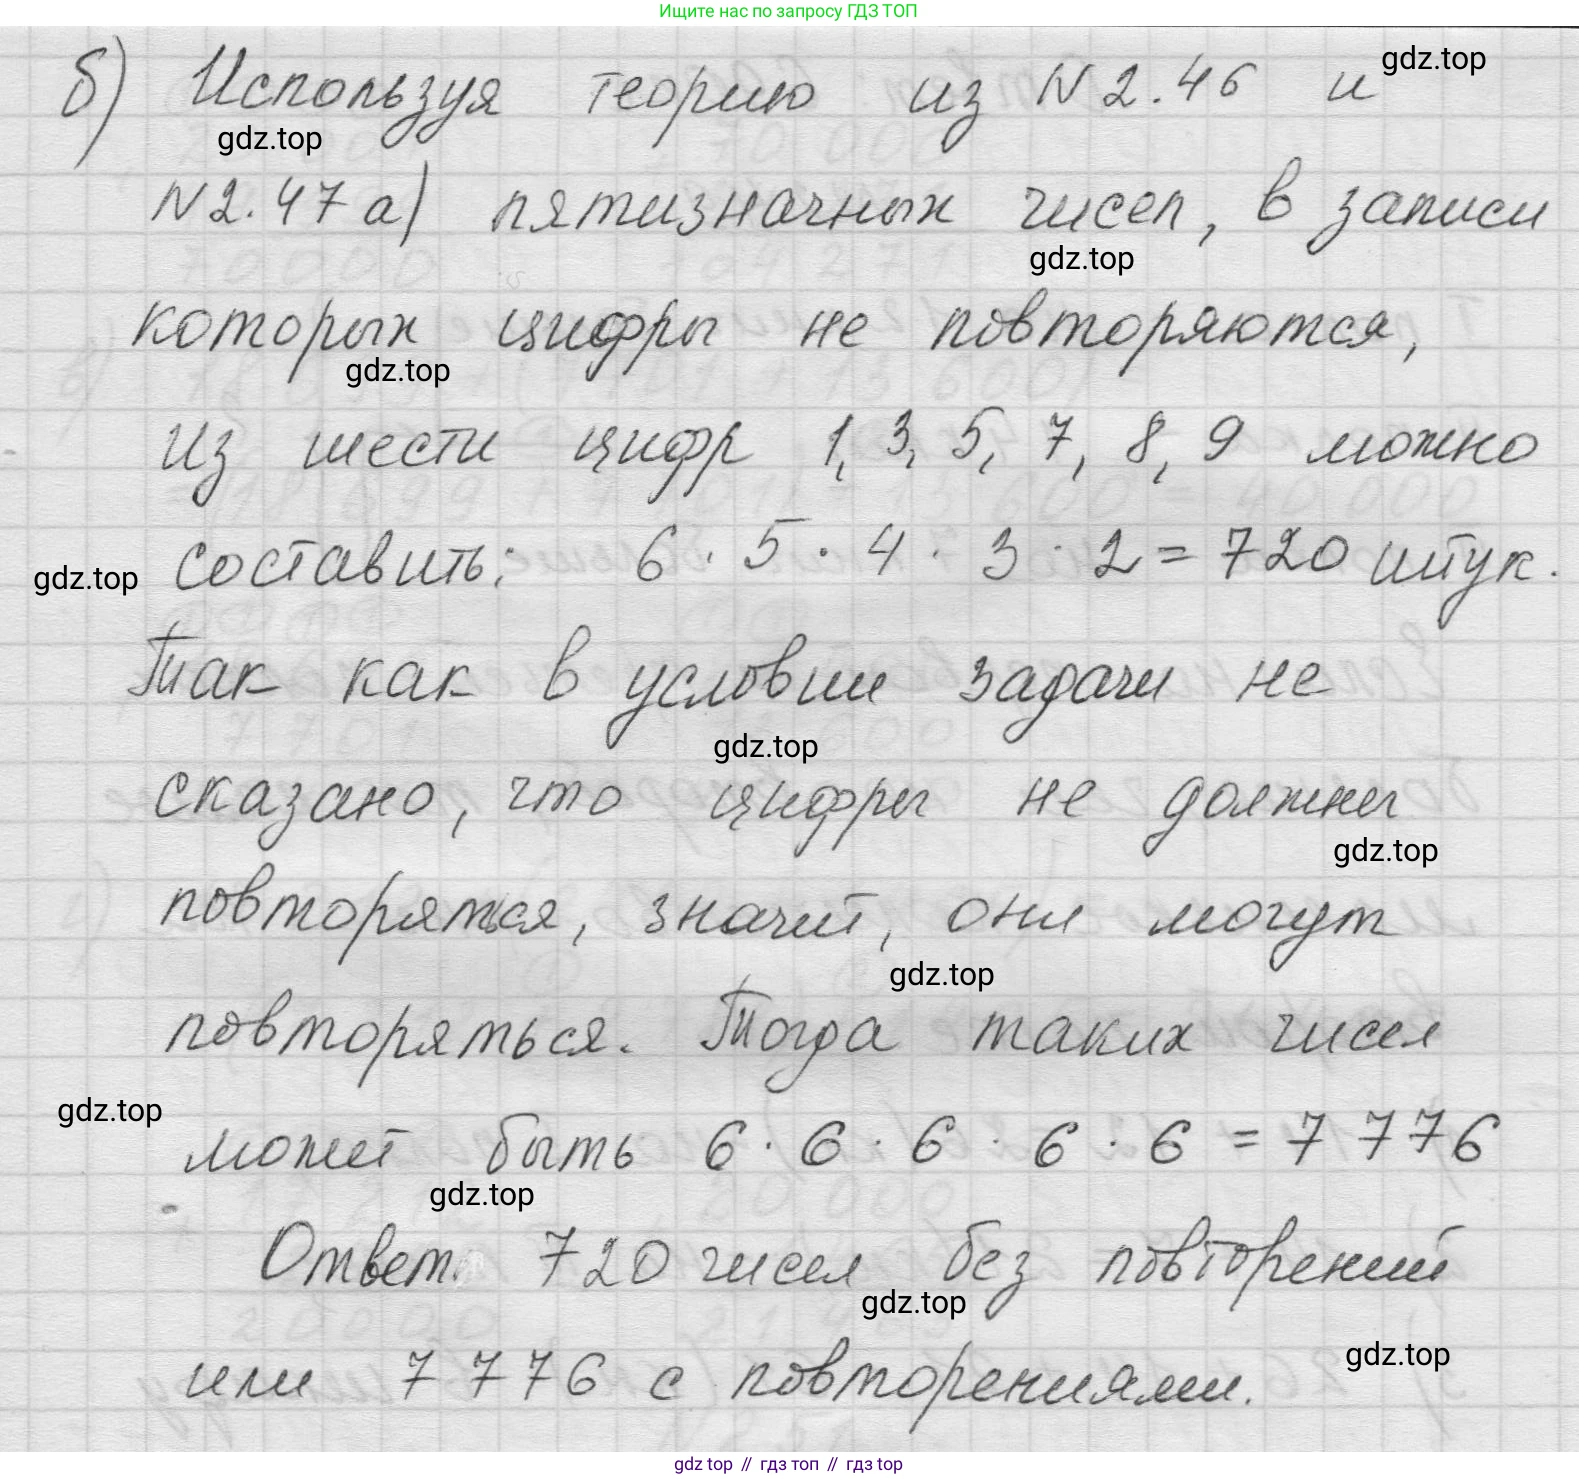 Ищите нас по запросу ГДЗ ТОП
gdz.top
б) Используя теорию из N 2.46 и
gdz.top
N 2.47 а) пятизначных чисел, в записи
gdz.top
которых цифры не повторяются,
gdz.top
из шести цифр 1, 3, 5, 7, 8, 9 можно
составить: 6 · 5 · 4 · 3 · 2 = 720 штук.
gdz.top
Так как в условии задачи не
gdz.top
сказано, что цифры не должны
gdz.top
повторяться, значит, они могут
gdz.top
повторяться. Тогда таких чисел
gdz.top
может быть 6 · 6 · 6 · 6 · 6 = 7 776
gdz.top
Ответ. 720 чисел без повторений
gdz.top
или 7 776 с повторениями.
gdz.top
gdz top // гдз топ // гдз top